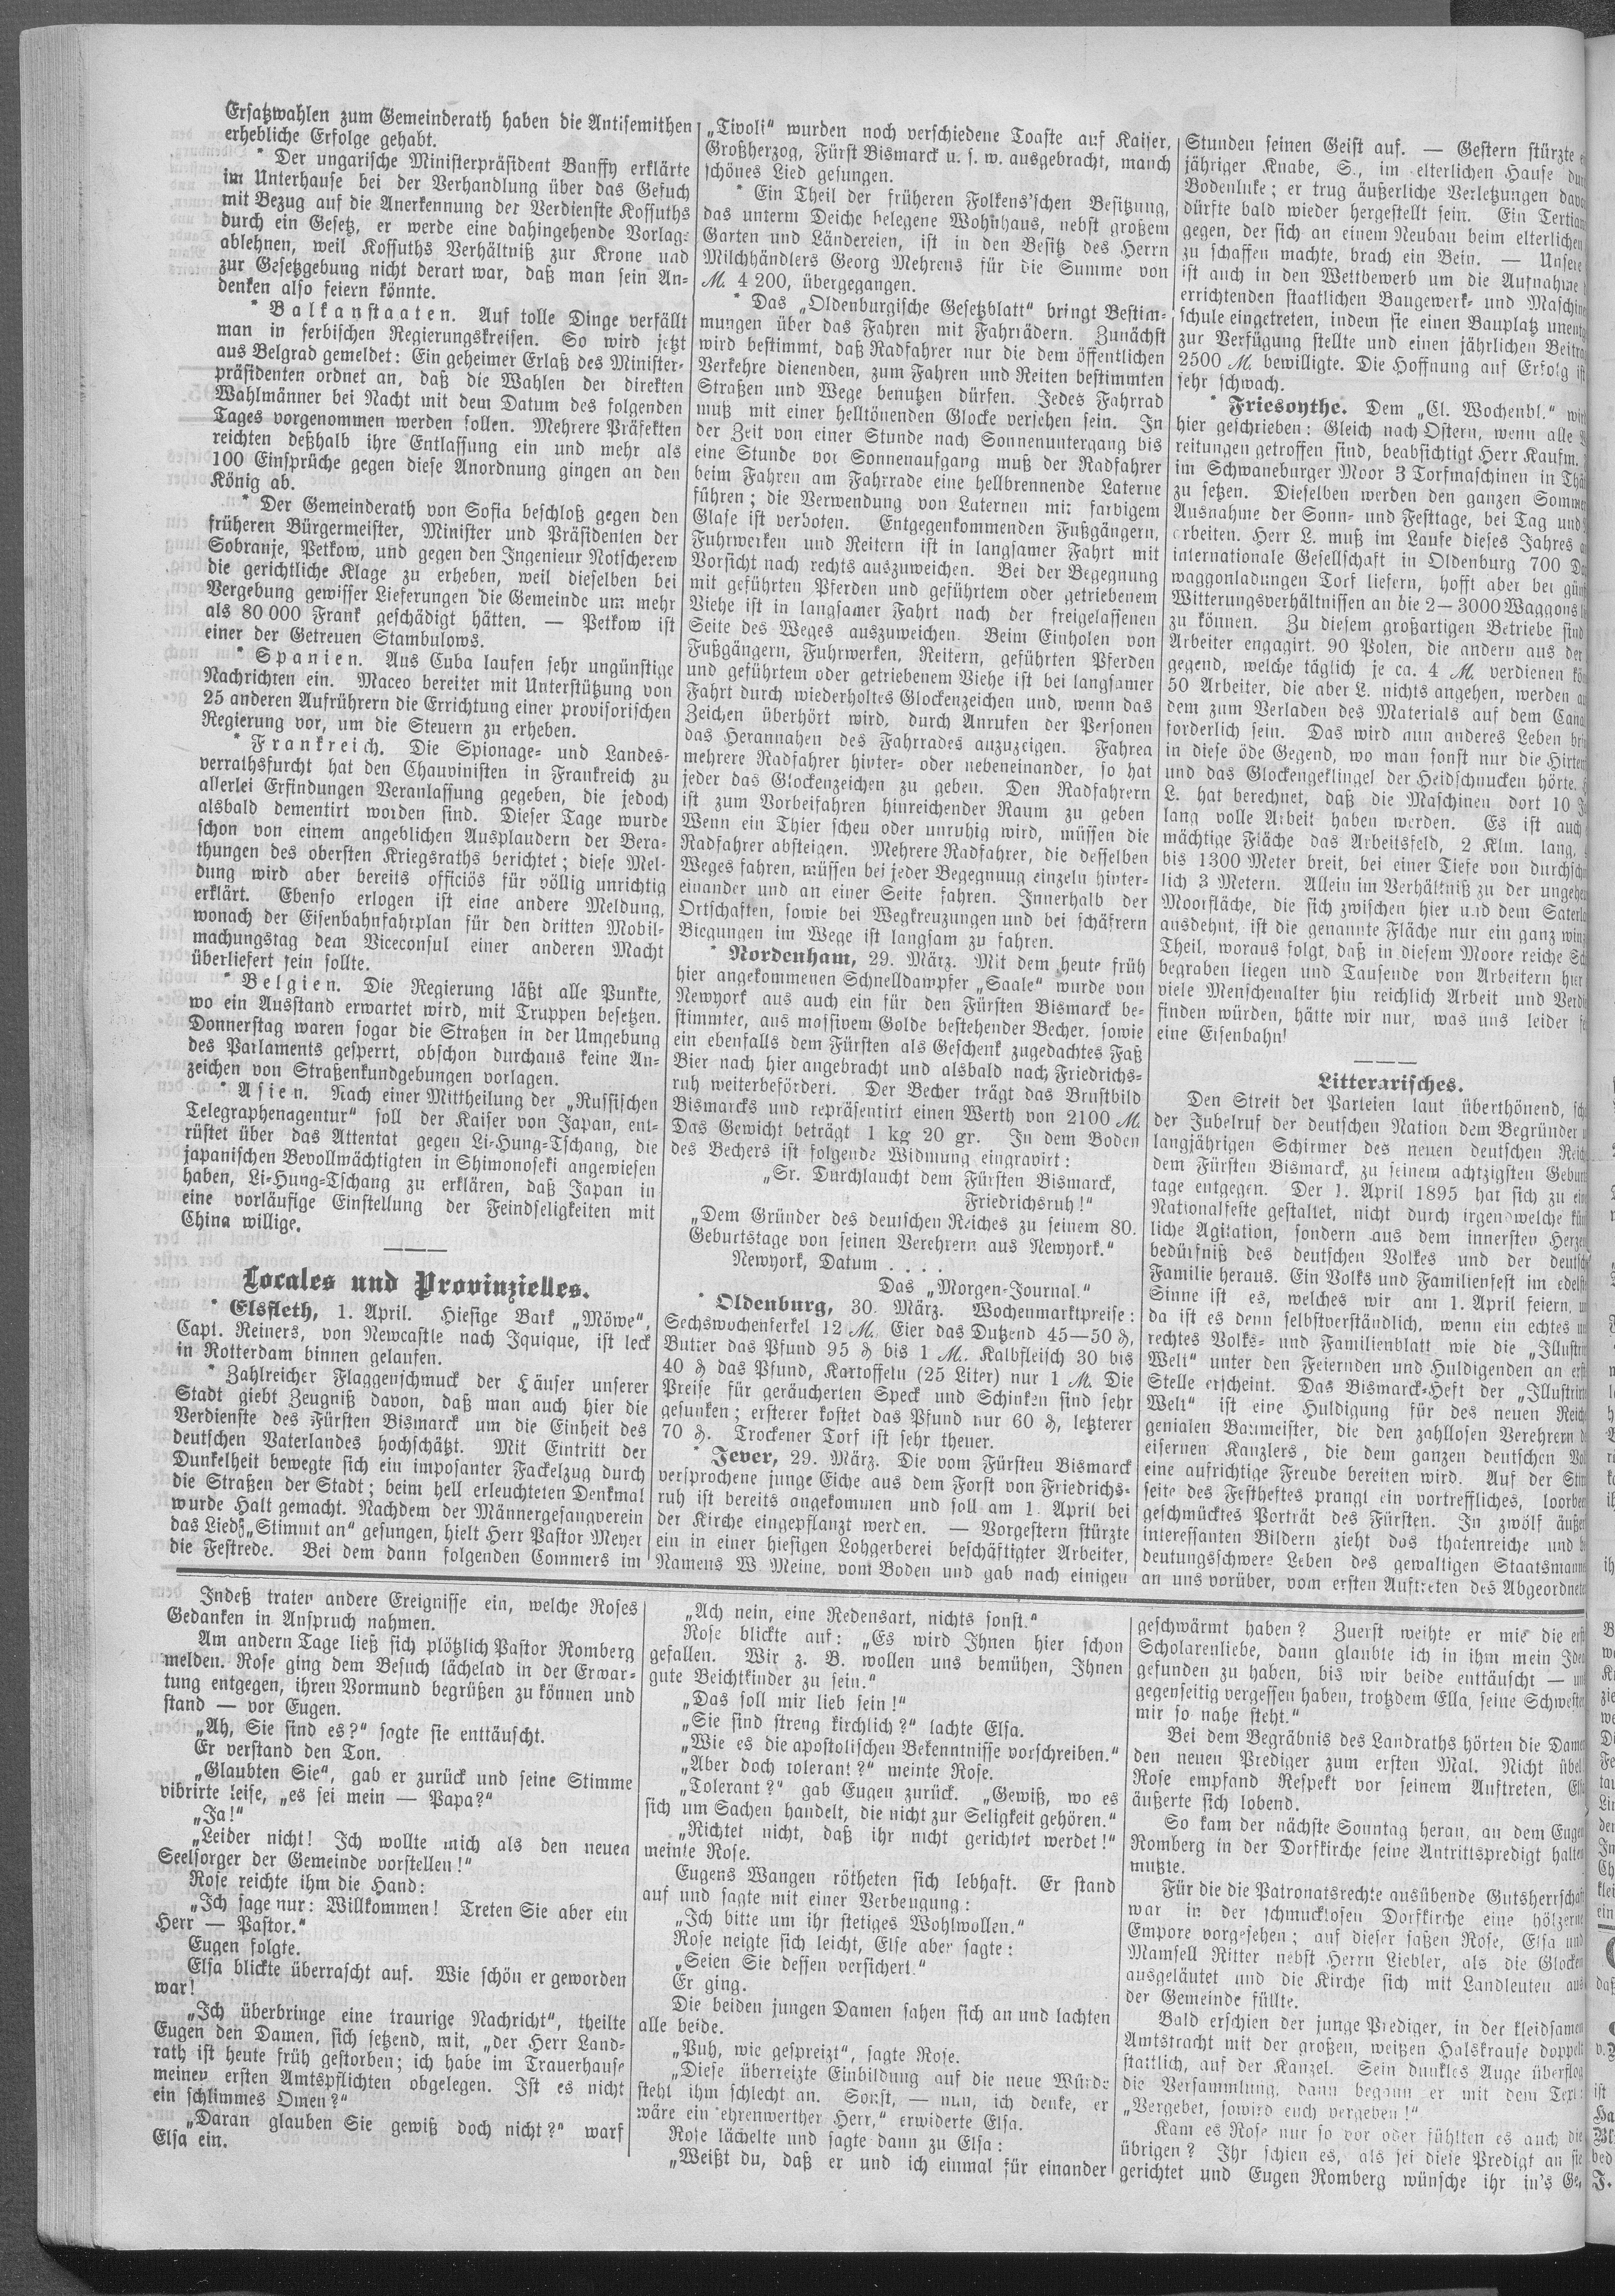 Ersatzwahlen zum Gemeinderath haben die Antisemithen
erhebliche Erfolge gehabt.
* Der ungarische Ministerpräsident Banffy erklärte
im Unterhause bei der Verhandlung über das Gesuch
mit Bezug auf die Anerkennung der Verdienste Kossuths
durch ein Gesetz, er werde eine dahingehende Vorlage
ablehnen, weil Kossuths Verhältniß zur Krone und
zur Gesetzgebung nicht derart war, daß man sein An-
denken also feiern könnte.
* Balkanstaaten. Auf tolle Dinge verfällt
man in serbischen Regierungskreisen. So wird jetzt
aus Belgrad gemeldet: Ein geheimer Erlaß des Minister-
präsidenten ordnet an, daß die Wahlen der direkten
Wahlmänner bei Nacht mit dem Datum des folgenden
Tages vorgenommen werden sollen. Mehrere Präfekten
reichten deßhalb ihre Entlassung ein und mehr als
100 Einsprüche gegen diese Anordnung gingen an den
König ab.
* Der Gemeinderath von Sofia beschloß gegen den
früheren Bürgermeister, Minister und Präsidenten der
Sobranje, Petkow, und gegen den Ingenieur Notscherew
die gerichtliche Klage zu erheben, weil dieselben bei
Vergebung gewisser Lieferungen die Gemeinde um mehr
als 80 000 Frank geschädigt hätten. — Petkow ist
einer der Getreuen Stambulows.
* Spanien. Aus Cuba laufen sehr ungünstige
Nachrichten ein. Maceo bereitet mit Unterstützung von
25 anderen Aufrührern die Errichtung einer provisorischen
Regierung vor, um die Steuern zu erheben.
* Frankreich. Die Spionage- und Landes-
verrathsfurcht hat den Chauvinisten in Frankreich zu
allerlei Erfindungen Veranlassung gegeben, die jedoch
alsbald dementirt worden sind. Dieser Tage wurde
schon von einem angeblichen Ausplaudern der Bera-
thungen des obersten Kriegsraths berichtet; diese Mel-
dung wird aber bereits officiös für völlig unrichtig
erklärt. Ebenso erlogen ist eine andere Meldung,
wonach der Eisenbahnfahrplan für den dritten Mobil-
machungstag dem Viceconsul einer anderen Macht
überliefert sein sollte.
* Belgien. Die Regierung läßt alle Punkte,
wo ein Ausstand erwartet wird, mit Truppen besetzen.
Donnerstag waren sogar die Straßen in der Umgebung
des Parlaments gesperrt, obschon durchaus keine An-
zeichen von Straßenkundgebungen vorlagen.
* Asien. Nach einer Mittheilung der „Russischen
Telegraphenagentur“ soll der Kaiser von Japan, ent-
rüstet über das Attentat gegen Li-Hung-Tschang, die
japanischen Bevollmächtigten in Shimonoseki angewiesen
haben, Li-Hung-Tschang zu erklären, daß Japan in
eine vorläufige Einstellung der Feindseligkeiten mit
China willige.
Locales und Provinzielles.
* Elsfleth, 1. April. Hiesige Bark „Möwe“,
Capt. Reiners, von Newcastle nach Iquique, ist leck
in Rotterdam binnen gelaufen.
* Zahlreicher Flaggenschmuck der Häuser unserer
Stadt giebt Zeugniß davon, daß man auch hier die
Verdienste des Fürsten Bismarck um die Einheit des
deutschen Vaterlandes hochschätzt. Mit Eintritt der
Dunkelheit bewegte sich ein imposanter Fackelzug durch
die Straßen der Stadt; beim hell erleuchteten Denkmal
wurde Halt gemacht. Nachdem der Männergesangverein
das Lied „Stimmt an“ gesungen, hielt Herr Pastor Meyer
die Festrede. Bei dem dann folgenden Commers im
„Tivoli“ wurden noch verschiedene Toaste auf Kaiser,
Großherzog, Fürst Bismarck u. s. w. ausgebracht, manch
schönes Lied gesungen.
* Ein Theil der früheren Folkens'schen Besitzung,
das unterm Deiche belegene Wohnhaus, nebst großem
Garten und Ländereien, ist in den Besitz des Herrn
Milchhändlers Georg Mehrens für die Summe von
M. 4 200, übergegangen.
* Das „Oldenburgische Gesetzblatt“ bringt Bestim-
mungen über das Fahren mit Fahrrädern. Zunächst
wird bestimmt, daß Radfahrer nur die dem öffentlichen
Verkehre dienenden, zum Fahren und Reiten bestimmten
Straßen und Wege benutzen dürfen. Jedes Fahrrad
muß mit einer helltönenden Glocke versehen sein. In
der Zeit von einer Stunde nach Sonnenuntergang bis
eine Stunde vor Sonnenaufgang muß der Radfahrer
beim Fahren am Fahrrade eine hellbrennende Laterne
führen; die Verwendung von Laternen mit farbigem
Glase ist verboten. Entgegenkommenden Fußgängern,
Fuhrwerken und Reitern ist in langsamer Fahrt mit
Vorsicht nach rechts auszuweichen. Bei der Begegnung
mit geführten Pferden und geführtem oder getriebenem
Viehe ist in langsamer Fahrt nach der freigelassenen
Seite des Weges auszuweichen. Beim Einholen von
Fußgängern, Fuhrwerken, Reitern, geführten Pferden
und geführtem oder getriebenem Viehe ist bei langsamer
Fahrt durch wiederholtes Glockenzeichen und, wenn das
Zeichen überhört wird, durch Anrufen der Personen
das Herannahen des Fahrrades anzuzeigen. Fahren
mehrere Radfahrer hinter- oder nebeneinander, so hat
jeder das Glockenzeichen zu geben. Den Radfahrern
ist zum Vorbeifahren hinreichender Raum zu geben
Wenn ein Thier scheu oder unruhig wird, müssen die
Radfahrer absteigen. Mehrere Radfahrer, die desselben
Weges fahren, müssen bei jeder Begegnung einzeln hinter-
einander und an einer Seite fahren. Innerhalb der
Ortschaften, sowie bei Wegkreuzungen und bei schärfern
Biegungen im Wege ist langsam zu fahren.
* Nordenham, 29. März. Mit dem heute früh
hier angekommenen Schnelldampfer „Saale“ wurde von
Newyork aus auch ein für den Fürsten Bismarck be-
stimmter, aus massivem Golde bestehender Becher, sowie
ein ebenfalls dem Fürsten als Geschenk zugedachtes Faß
Bier nach hier angebracht und alsbald nach Friedrichs-
ruh weiterbefördert. Der Becher trägt das Brustbild
Bismarcks und repräsentirt einen Werth von 2100 M.
Das Gewicht beträgt 1 kg 20 gr. In dem Boden
des Bechers ist folgende Widmung eingravirt:
„Sr. Durchlaucht dem Fürsten Bismarck,
Friedrichsruh!“
„Dem Gründer des deutschen Reiches zu seinem 80.
Geburtstage von seinen Verehrern aus Newyork.“
Newyork, Datum . . . .
Das „Morgen-Journal.“
* Oldenburg, 30. März. Wochenmarktpreise:
Sechswochenferkel 12 M. Eier das Dutzend 45—50 ₰,
Butter das Pfund 95 ₰ bis 1 M. Kalbfleisch 30 bis
40 ₰ das Pfund, Kartoffeln (25 Liter) nur 1 M. Die
Preise für geräucherten Speck und Schinken sind sehr
gesunken; ersterer kostet das Pfund nur 60 ₰, letzterer
70 ₰. Trockener Torf ist sehr theuer.
* Jever, 29. März. Die vom Fürsten Bismarck
versprochene junge Eiche aus dem Forst von Friedrichs-
ruh ist bereits angekommen und soll am 1. April bei
der Kirche eingepflanzt werden. — Vorgestern stürzte
ein in einer hiesigen Lohgerberei beschäftigter Arbeiter,
Namens W. Meine, vom Boden und gab nach einigen
Stunden seinen Geist auf. — Gestern stürzte
jähriger Knabe, S., im elterlichen Hause
Bodenluke; er trug äußerliche Verletzungen
dürfte bald wieder hergestellt sein. Ein
gegen, der sich an einem Neubau beim elterlichen
zu schaffen machte, brach ein Bein. — Unsere
ist auch in den Wettbewerb um die Aufnahme
errichtenden staatlichen Baugewerk- und
schule eingetreten, indem sie einen Bauplatz
zur Verfügung stellte und einen jährlichen
2500 M. bewilligte. Die Hoffnung auf Erfolg
sehr schwach.
* Friesoythe. Dem „Cl. Wochenbl.“
hier geschrieben: Gleich nach Ostern, wenn alle
reitungen getroffen sind, beabsichtigt Herr Kaufm.
im Schwaneburger Moor 3 Torfmaschinen in
zu setzen. Dieselben werden den ganzen
Ausnahme der Sonn- und Festtage, bei Tag und
arbeiten. Herr L. muß im Laufe dieses Jahres
internationale Gesellschaft in Oldenburg 700
waggonladungen Torf liefern, hofft aber bei
Witterungsverhältnissen an die 2—3000 Waggons
zu können. Zu diesem großartigen Betriebe sind
Arbeiter engagirt. 90 Polen, die andern aus der
gegend, welche täglich je ca. 4 M. verdienen
50 Arbeiter, die aber L. nichts angehen, werden
dem zum Verladen des Materials auf dem
forderlich sein. Das wird nun anderes Leben
in diese öde Gegend, wo man sonst nur die
und das Glockengeklingel der Heidschnucken hörte.
L. hat berechnet, daß die Maschinen dort 10
lang volle Arbeit haben werden. Es ist auch
mächtige Fläche das Arbeitsfeld, 2 Klm. lang,
bis 1300 Meter breit, bei einer Tiefe von
lich 3 Metern. Allein im Verhältniß zu der
Moorfläche, die sich zwischen hier und dem
ausdehnt, ist die genannte Fläche nur ein ganz
Theil, woraus folgt, daß in diesem Moore reiche
begraben liegen und Tausende von Arbeitern hier
viele Menschenalter hin reichlich Arbeit und
finden würden, hätte wir nur, was uns leider
eine Eisenbahn!
Litterarisches.
Den Streit der Parteien laut überthönend,
der Jubelruf der deutschen Nation dem Begründer
langjährigen Schirmer des neuen deutschen
dem Fürsten Bismarck, zu seinem achtzigsten
tage entgegen. Der 1. April 1895 hat sich zu
Nationalfeste gestaltet, nicht durch irgendwelche
liche Agitation, sondern aus dem innersten
bedürfniß des deutschen Volkes und der
Familie heraus. Ein Volks und Familienfest im
Sinne ist es, welches wir am 1. April feiern,
da ist es denn selbstverständlich, wenn ein echtes
rechtes Volks- und Familienblatt wie die
Welt“ unter den Feiernden und Huldigenden an
Stelle erscheint. Das Bismarck-Heft der
Welt“ ist eine Huldigung für des neuen
genialen Baumeister, die den zahllosen Verehrern
eisernen Kanzlers, die dem ganzen deutschen
eine aufrichtige Freude bereiten wird. Auf der
seite des Festheftes prangt ein vortreffliches,
geschmücktes Porträt des Fürsten. In zwölf
interessanten Bildern zieht das thatenreiche und
deutungsschwere Leben des gewaltigen
an uns vorüber, vom ersten Auftreten des
Indeß traten andere Ereignisse ein, welche Roses
Gedanken in Anspruch nahmen.
Am andern Tage ließ sich plötzlich Pastor Romberg
melden. Rose ging dem Besuch lächelnd in der Erwar-
tung entgegen, ihren Vormund begrüßen zu können und
stand — vor Eugen.
„Ah, Sie sind es?“ sagte sie enttäuscht.
Er verstand den Ton.
„Glaubten Sie“, gab er zurück und seine Stimme
vibrirte leise, „es sei mein — Papa?“
„Ja!“
„Leider nicht! Ich wollte mich als den neuen
Seelsorger der Gemeinde vorstellen!“
Rose reichte ihm die Hand:
„Ich sage nur: Willkommen! Treten Sie aber ein
Herr — Pastor.“
Eugen folgte.
Elsa blickte überrascht auf. Wie schön er geworden
war!
„Ich überbringe eine traurige Nachricht“, theilte
Eugen den Damen, sich setzend, mit, „der Herr Land-
rath ist heute früh gestorben; ich habe im Trauerhause
meinen ersten Amtspflichten obgelegen. Ist es nicht
ein schlimmes Omen?“
„Daran glauben Sie gewiß doch nicht?“ warf
Elsa ein.
„Ach nein, eine Redensart, nichts sonst.“
Rose blickte auf: „Es wird Ihnen hier schon
gefallen. Wir z. B. wollen uns bemühen, Ihnen
gute Beichtkinder zu sein.“
„Das soll mir lieb sein!“
„Sie sind streng kirchlich?“ lachte Elsa.
„Wie es die apostolischen Bekenntnisse vorschreiben.“
„Aber doch tolerant?“ meinte Rose.
„Tolerant?“ gab Eugen zurück. „Gewiß, wo es
sich um Sachen handelt, die nicht zur Seligkeit gehören.“
„Richtet nicht, daß ihr nicht gerichtet werdet!“
meinte Rose.
Eugens Wangen rötheten sich lebhaft. Er stand
auf und sagte mit einer Verbeugung:
„Ich bitte um ihr stetiges Wohlwollen.“
Rose neigte sich leicht, Else aber sagte:
„Seien Sie dessen versichert.“
Er ging.
Die beiden jungen Damen sahen sich an und lachten
alle beide.
„Puh, wie gespreizt“, sagte Rose.
„Diese überreizte Einbildung auf die neue Würde
steht ihm schlecht an. Sonst, — nun, ich denke, er
wäre ein ehrenwerther Herr,“ erwiderte Elsa.
Rose lächelte und sagte dann zu Elsa:
„Weißt du, daß er und ich einmal für einander
geschwärmt haben? Zuerst weihte er mir die
Scholarenliebe, dann glaubte ich in ihm mein
gefunden zu haben, bis wir beide enttäuscht —
gegenseitig vergessen haben, trotzdem Ella, seine Schwester
mir so nahe steht.“
Bei dem Begräbnis des Landraths hörten die Damen
den neuen Prediger zum ersten Mal. Nicht übel.
Rose empfand Respekt vor seinem Auftreten, Elsa
äußerte sich lobend.
So kam der nächste Sonntag heran, an dem Eugen
Romberg in der Dorfkirche seine Antrittspredigt halten
mußte.
Für die die Patronatsrechte ausübende Gutsherrschaft
war in der schmucklosen Dorfkirche eine hölzerne
Empore vorgesehen; auf dieser saßen Rose, Elsa und
Mamsell Ritter nebst Herrn Liebler, als die Glocken
ausgeläutet und die Kirche sich mit Landleuten aus
der Gemeinde füllte.
Bald erschien der junge Prediger, in der kleidsamen
Amtstracht mit der großen, weißen Halskrause doppelt
stattlich, auf der Kanzel. Sein dunkles Auge überflog
die Versammlung, dann begann er mit dem Text:
„Vergebet, so wird euch vergeben!“
Kam es Rose nur so vor oder fühlten es auch die
übrigen? Ihr schien es, als sei diese Predigt an sie
gerichtet und Eugen Romberg wünsche ihr in's Ge-